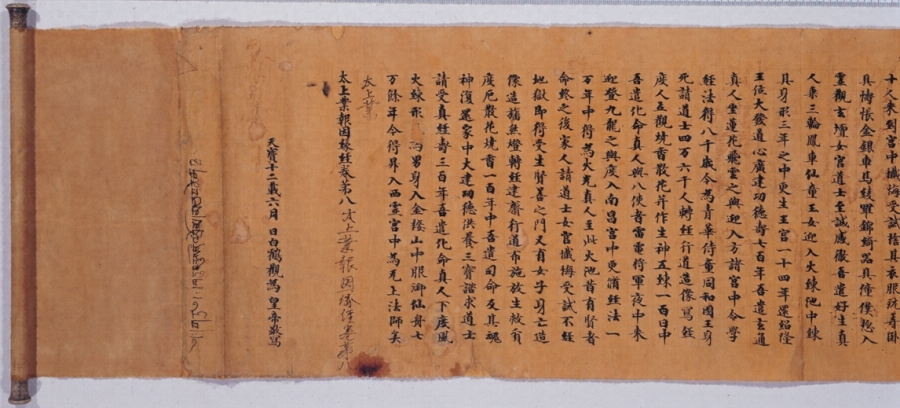 十人來到宮中懺悔受試捨其衣服玩具
具悕帳金銀車馬綾羅錦綺器具僮僕惣入
靈觀玄壇女官道士至誠感徹吾遣好生真
人乗三輪鳳車仙童玉女迎入火練池中練
具身形三年之中更生王宮二十四年還紹隆
王位大發道心廣建功德壽七百年吾遣玄通
真人坐蓮花飛雲之輿迎入方諸宮中令學
經法得八十歲今為青華侍童同和國王身
死請道士四万六千人轉經行道造像寫經一
度人五觀燒香散花并作生神五練一百日中
吾遣化命真人與八使者雷電將軍夜中來
迎登九龍之輿度入南昌宮中更練經法一
万年中得為大光真人主此火池昔有賢者
命終之後家人請道士女官懺悔受試不經
地獄即得受生賢善之門又有女子身亡造
像造幡然燈轉經建齋行道布施放生救貧
度厄散花燒香一百年中吾遣司命及其魂
神復還家中大建功德洪養三寶諮求道士
請受真經壽三百年吾遣化命真人下度風
火練形為男身入金樓山中服御仙丹七
万餘年令得昇入西靈宮中為无上法師矣
太上業
太上業報因緣經卷第八 太上業報因緣經卷第八
天寶十二載六月 日白鶴觀為 皇帝敬寫